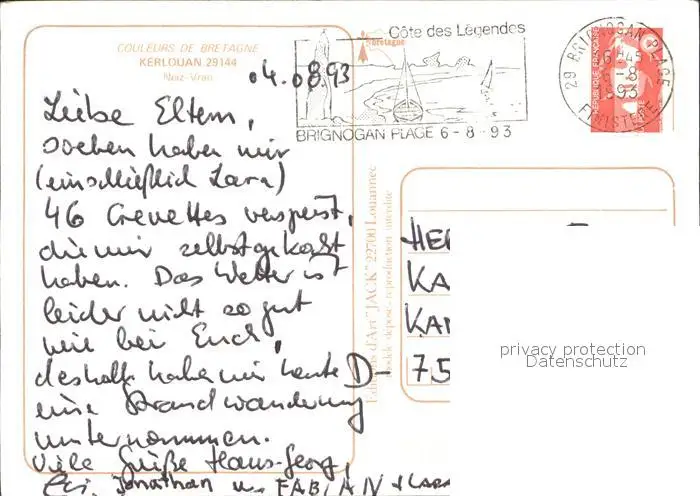 COULEURS DE BRETAGNE
KERLOUAN 29144
Neiz-Vran
04.08.93
Liebe Eltern,
soeben haben wir
(einschließlich Lara)
46 Crevettes verspeist,
die wir selbstgekocht
haben. Das Wetter ist
leider nicht so gut
wie bei Euch,
deshalb haben wir heute
eine Strandwanderung
unternommen.
Viele Grüße Hans-Georg,
Jonathan u. FABIAN + LARA
Côte des Légendes
Bretagne
BRIGNOGAN PLAGE 6-8-93
29 BRIGNOGAN PLAGE
6-8
93
FINISTERE
REPUBLIQUE FRANÇAISE
Editions d'Art "JACK" 22700 Louannec
modèle déposé - reproduction interdite
HER
KA
KAN
D-75
privacy protection
Datenschutz